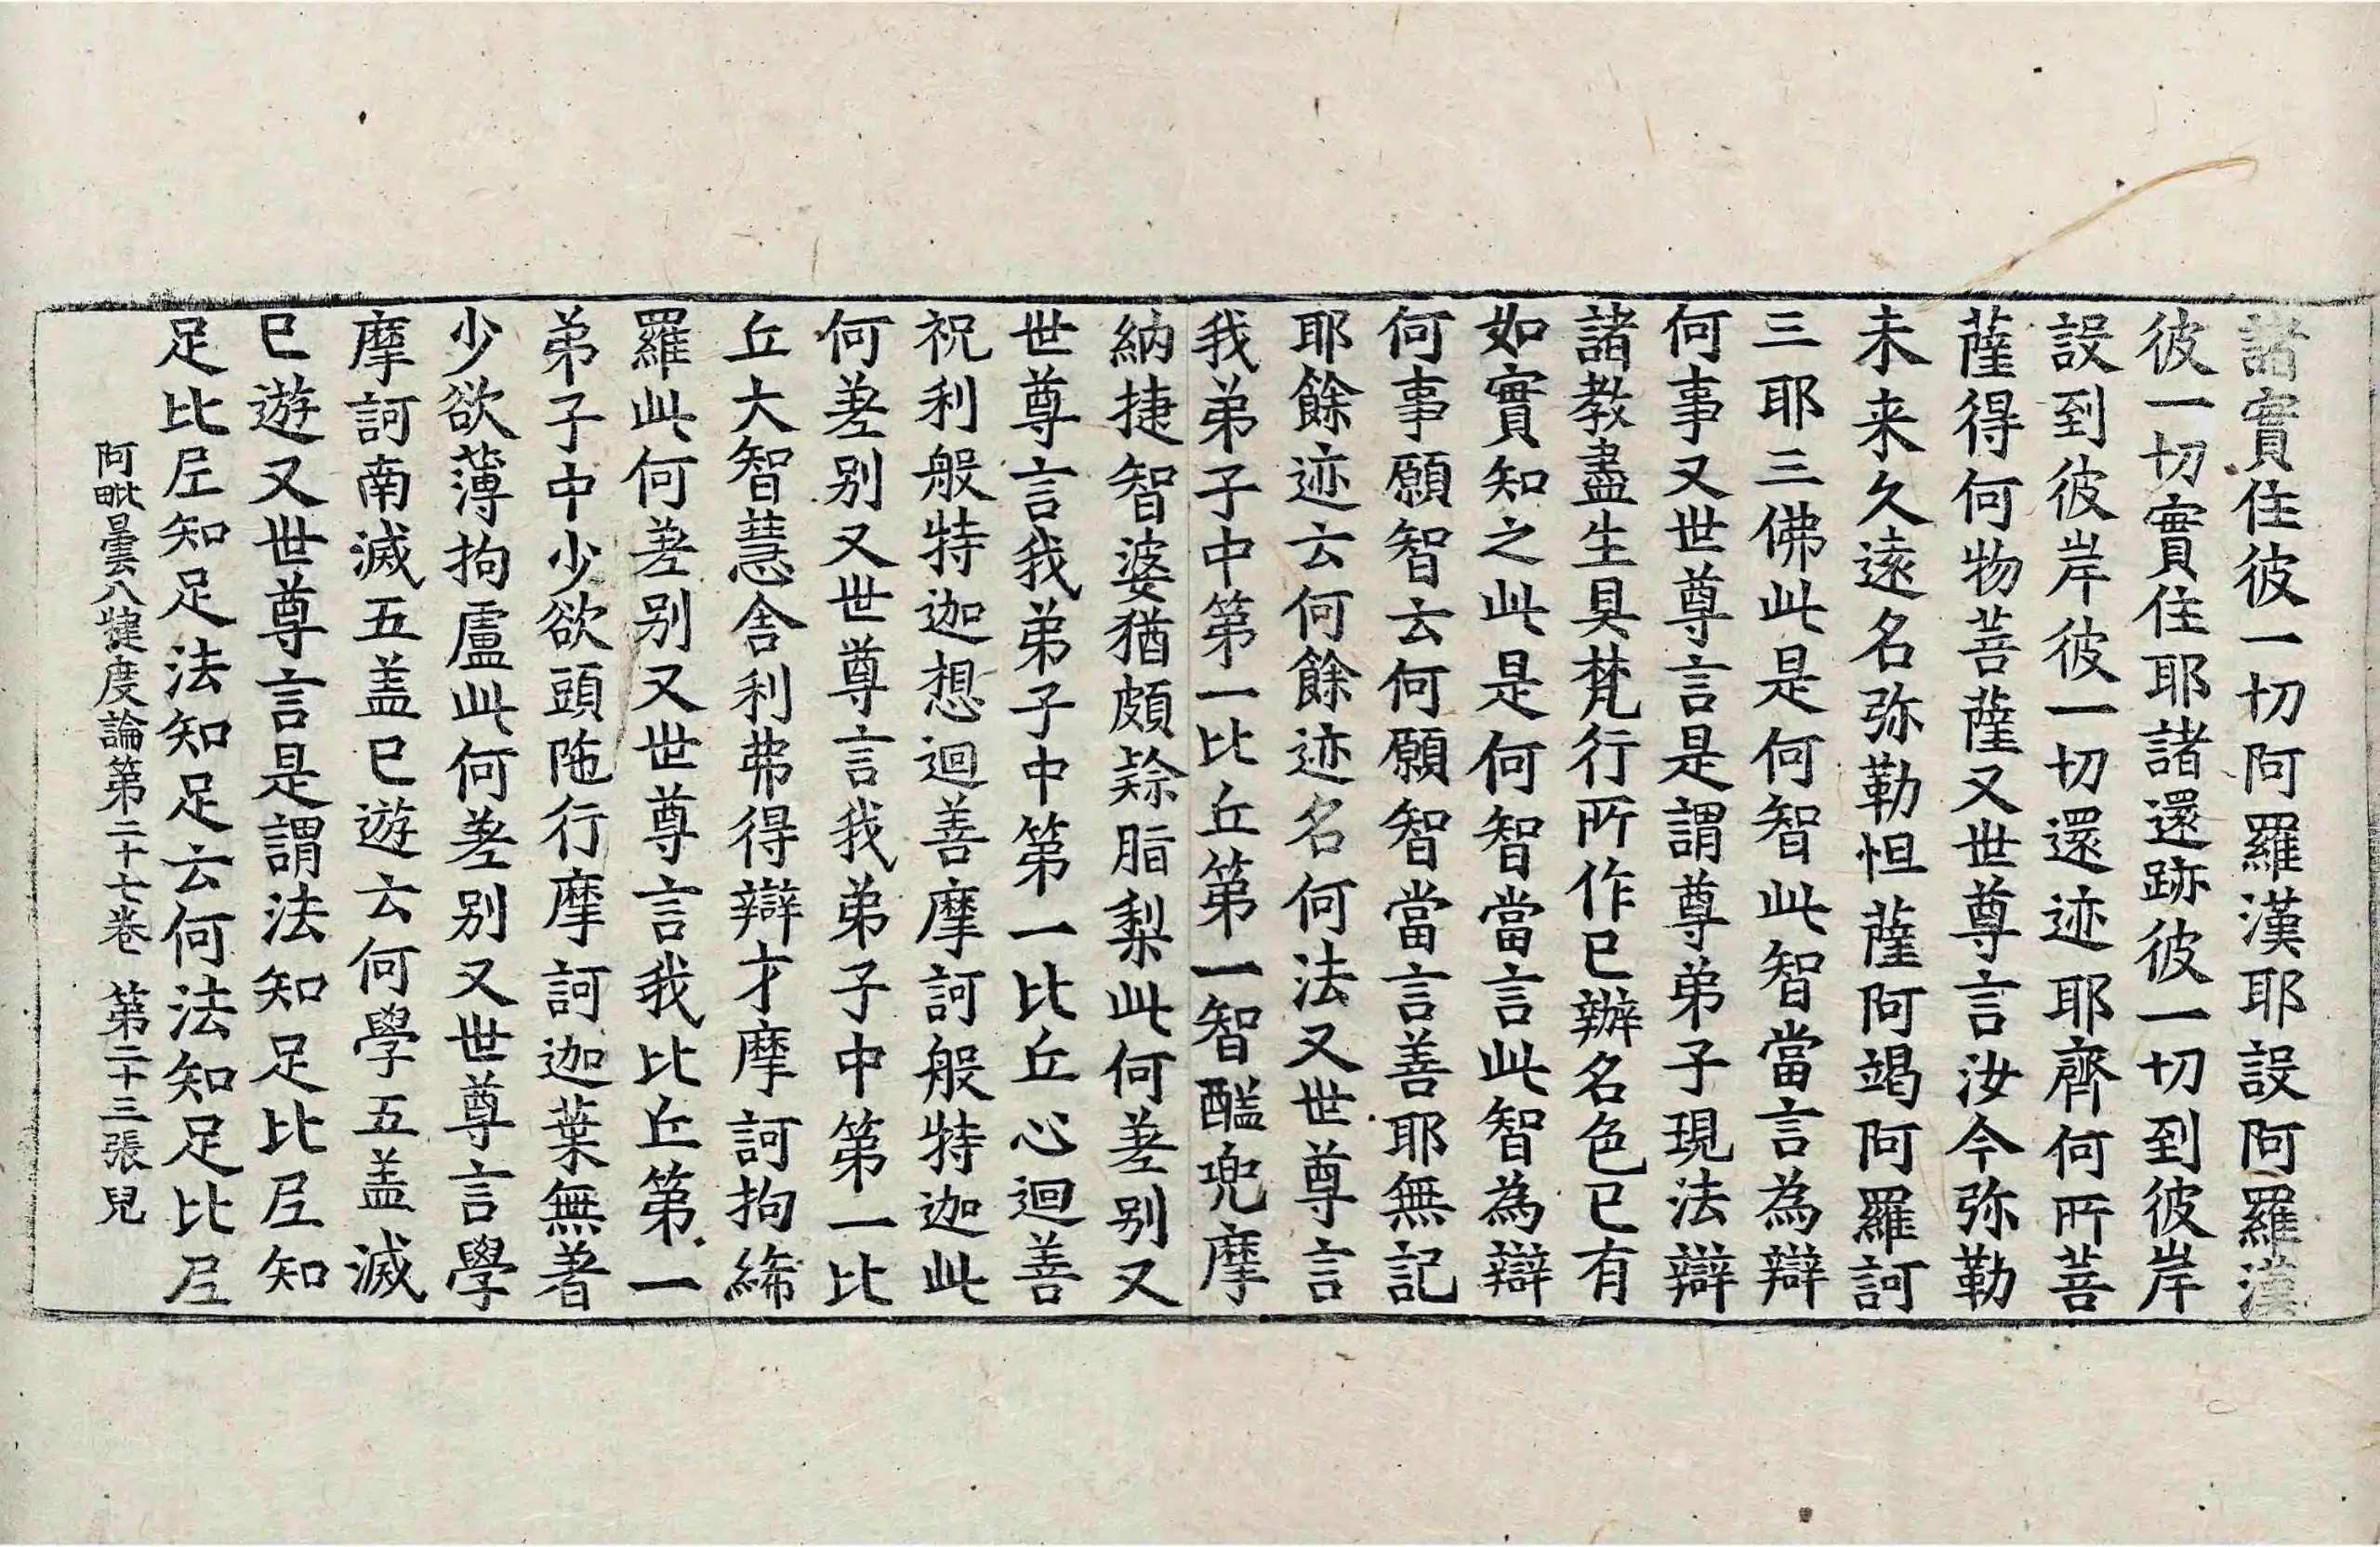 諸實住彼一切阿羅漢耶設阿羅漢
彼一切實住耶諸還跡彼一切到彼岸
設到彼岸彼一切還迹耶齊何所菩
薩得何物菩薩又世尊言汝今弥勒
未来久遠名弥勒怛薩阿竭阿羅訶
三耶三佛此是何智此智當言為辯
何事又世尊言是謂尊弟子現法辯
諸教盡生具梵行所作已辦名色已有
如實知之此是何智當言此智為辯
何事願智云何願智當言善耶無記
耶餘迹云何餘迹名何法又世尊言
我弟子中第一比丘第一智醯兜摩
納捷智婆猶頗賖脂梨此何差別又
世尊言我弟子中第一比丘心迴善
祝利般特迦想迴善摩訶般特迦此
何差别又世尊言我弟子中第一比
丘大智慧舎利弗得辯才摩訶拘絺
羅此何差别又世尊言我比丘第一
弟子中少欲頭陁行摩訶迦葉無著
少欲薄拘盧此何差别又世尊言學
摩訶南滅五盖已遊云何學五盖滅
已遊又世尊言是謂法知足比丘知
足比丘知足法知足云何法知足比丘
阿毗曇八犍度論第二十七卷 第二十三張 皃